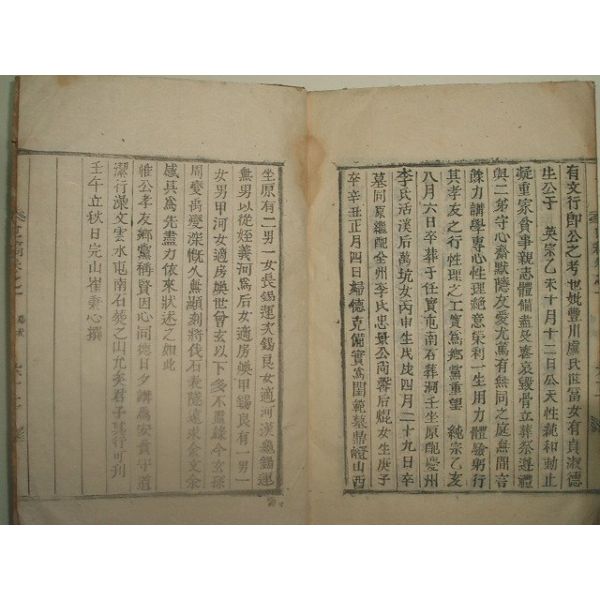 有文行卽公之考也妣豐川盧氏世富女有貞淑德
生公于 英宗乙未十月十二日公天性純和動止
凝重家貧事親志體備盡及喪哀毀骨立葬祭遵禮
與二弟守心齋默隱友愛尤篤有無同之庭無間言
餘力講學專心性理絶意榮利一生用力體驗躬行
其孝友之行性理之工實爲鄕黨重望 純宗乙亥
八月六日卒葬于任實屯南石葬洞壬坐原配慶州
李氏活溪后萬坑女丙申生戊戌四月二十九日卒
墓同原繼配全州李氏忠景公尚蓉后焜女生庚子
卒辛丑正月四日婦德克備實爲閨範墓鼎磴山酉
坐原有二男一女長錫運次錫良女適河漢龜錫運
無男以從姪義河爲后女適房煥甲錫良有一男一
女男甲河女適房煥世曾玄以下多不盡錄今玄孫
周燮禹燮深慨久無顯刻將伐石表隧遠來余文余
感其爲先盡力依來狀述之如此
惟公孝友鄕黨稱賢因心同德日夕講磨安貧守道
潔行藻文雲水屯南石葬之山允矣君子其行可刋
壬午立秋日完山崔秉心撰